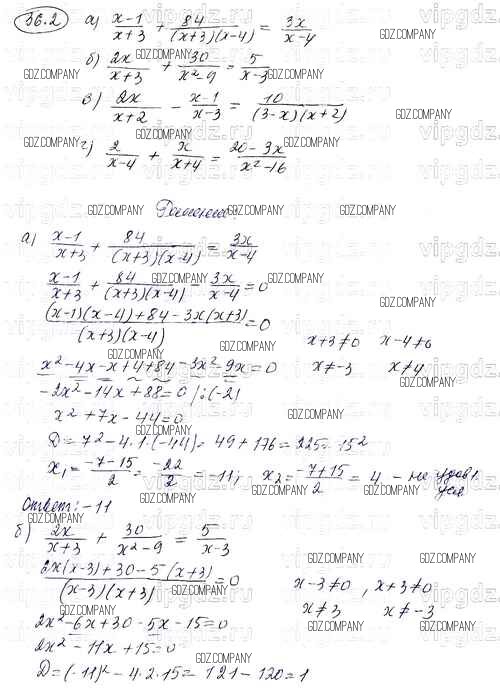 36.2 а) (x-1)/(x+3) + 84/((x+3)(x-4)) = 3x/(x-4)
б) 2x/(x+3) + 30/(x²-9) = 5/(x-3)
в) 2x/(x+2) - (x-1)/(x-3) = 10/((3-x)(x+2))
г) 2/(x-4) + x/(x+4) = (20-3x)/(x²-16)
Решение
а) (x-1)/(x+3) + 84/((x+3)(x-4)) = 3x/(x-4)
(x-1)/(x+3) + 84/((x+3)(x-4)) - 3x/(x-4) = 0
((x-1)(x-4)+84-3x(x+3))/((x+3)(x-4)) = 0
x+3≠0 x-4≠0
x≠-3 x≠4
x²-4x-x+4+84-3x²-9x=0
-2x²-14x+88=0 /:(-2)
x²+7x-44=0
D=7²-4·1·(-44)=49+176=225=15²
x₁=(-7-15)/2=-22/2=-11; x₂=(-7+15)/2=4 - не удов.
усл
Ответ: -11
б) 2x/(x+3) + 30/(x²-9) = 5/(x-3)
(2x(x-3)+30-5(x+3))/((x-3)(x+3)) = 0
x-3≠0, x+3≠0
x≠3 x≠-3
2x²-6x+30-5x-15=0
2x²-11x+15=0
D=(-11)²-4·2·15=121-120=1
GDZ.COMPANY
vipgdz.ru